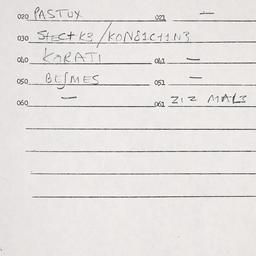 020 PASTUX 021 —
030 STECTKE/KONEICTINE
040 KARATI 041 —
050 BEJMES 051 —
060 — 061 ZIZ MALE